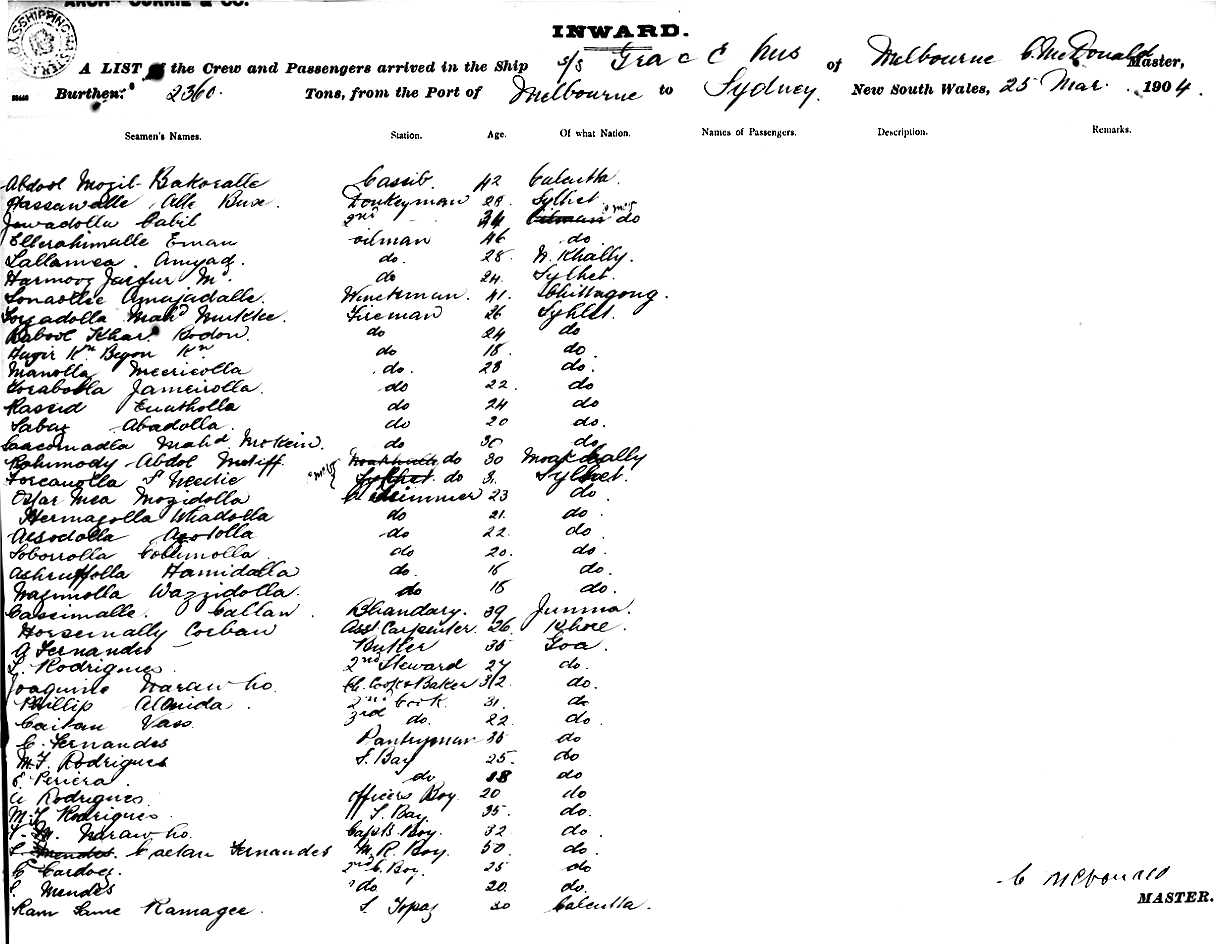 ARCHD CURRIE & CO.
SYDNEY SHIPPING MASTER
INWARD.
A LIST of the Crew and Passengers arrived in the Ship s/s of Melbourne C. McDonald Master,
Burthen: 2360. Tons, from the Port of Melbourne to Sydney. New South Wales, 25 Mar. 1904.
Seamen's Names. Station. Age. Of what Nation. Names of Passengers. Description. Remarks.
Abdool Mozil Bakoralle Cassib. 42 Calcutta.
Hassawalle Alle Bux Donkeyman 28 Sylhet
Jowadolla Cabil 2nd 34 do
Ellerahimalle Eman oilman 46 do
Lallamea Amyad. do. 28. N. Khally.
Harmooz Jaffur Md do 24. Sylhet.
Sonaollee Amajadalle. Wincheman. 41. Chittagong.
Torzadolla Mahd Fireman 26 Sylhet.
Babool Khar Bodon. do 24 do
Kn. Kn. do 18. do.
Manolla do. 23 do.
Torabolla Jameirolla. do 22. do
Rassid do 24 do
Sabaz Abadolla. do 20 do.
Mahd Mokein. do 30 do
Rohimody Abdol Mutiff. do 30 Noakhally
Torcanolla do 31 Sylhet.
Osfar Mea Mozidolla Cl trimmer 23 do
Hermazolla Whadolla do 21. do.
Aesodolla Azotolla do 22. do.
Soborrolla do 20. do.
Ashruffolla Hamidalla do. 18 do.
Nazimolla Wazzidolla. do 18 do.
Cassimalle. Callan. Bhandary. 39 Jumma.
Horsemally Corban Asst Carpenter. 26.
A Fernandes Butler 35 Goa.
L. Rodrigues. 2nd Steward 27 do.
Joaquino Ch. Cook & Baker 32 do.
Phillip Almida. 2nd Cook 31. do
Caitan Vass. 3rd do. 22. do.
C. Fernandes Pantryman 35 do
M. F. Rodrigues S. Boy 25. do
E. Periera. do 18 do
A Rodrigues. officers Boy. 20 do
M. F. Rodrigues. S. Boy. 35. do.
F. M. Capts Boy. 32 do.
S. Mendes. Caetan Fernandes M. R. Boy. 50. do.
C Cardoz. 2nd C. Boy. 25 do
S. Mendes do 20. do.
Ram Lame Ramagee. S. Topaz 30 Calcutta.
C McDonald
MASTER.